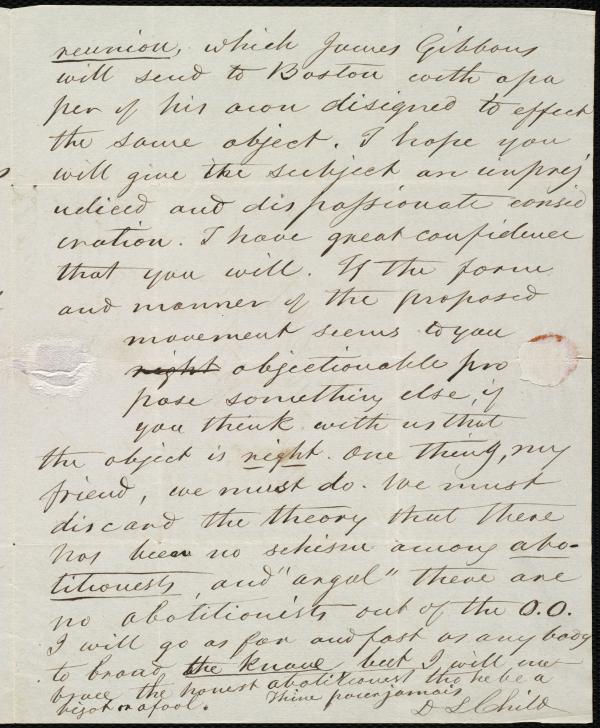 reunion, which James Gibbons
will send to Boston with a pa
per of his own disigned to effect
the same object. I hope you
will give the subject an unprej
udiced and dispassionate consid
eration. I have great confidence
that you will. If the form
and manner of the proposed
movement seems to you
right objectionable pro
pose something else, if
you think with us that
the object is right. One thing, my
friend, we must do. We must
discard the theory that there
has been no schism among abo-
litionists, and "argal" there are
no abolitionists out of the O.O.
I will go as far and fast as any body
to brand the knave but I will em
brace the honest abolitionest tho he be a
bigot or a fool. Thine pour jamais
D L Child